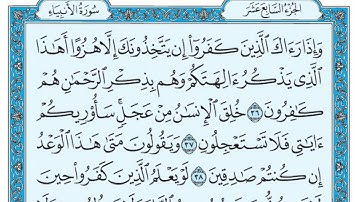 الجُزْءُ السَّابِعَ عَشَرَ
سُورَةُ الأَنْبِيَاءِ
وَإِذَا رَءَاكَ ٱلَّذِينَ كَفَرُوٓا۟ إِن يَتَّخِذُونَكَ إِلَّا هُزُوًا أَهَٰذَا
ٱلَّذِى يَذْكُرُ ءَالِهَتَكُمْ وَهُم بِذِكْرِ ٱلرَّحْمَٰنِ هُمْ
كَٰفِرُونَ ٣٦ خُلِقَ ٱلْإِنسَٰنُ مِنْ عَجَلٍ سَأُو۟رِيكُمْ
ءَايَٰتِى فَلَا تَسْتَعْجِلُونِ ٣٧ وَيَقُولُونَ مَتَىٰ هَٰذَا ٱلْوَعْدُ
إِن كُنتُمْ صَٰدِقِينَ ٣٨ لَوْ يَعْلَمُ ٱلَّذِينَ كَفَرُوا۟ حِينَ